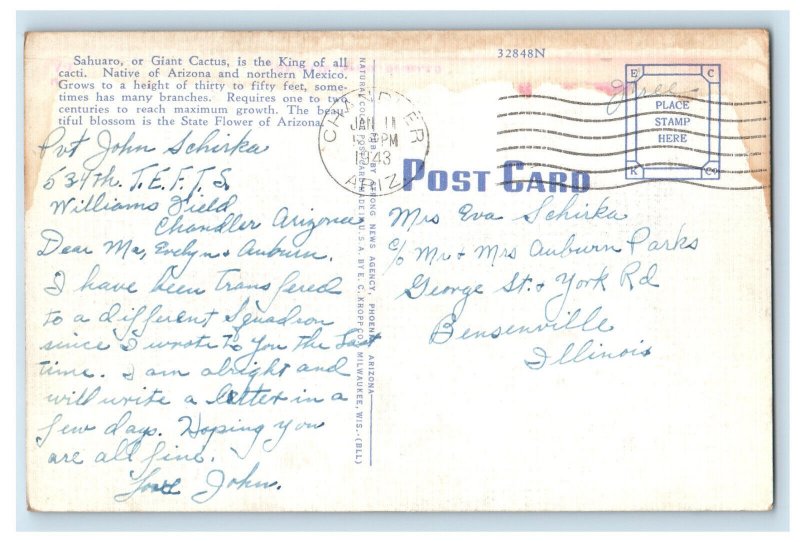 32848N
Sahuaro, or Giant Cactus, is the King of all
cacti. Native of Arizona and northern Mexico.
Grows to a height of thirty to fifty feet, some-
times has many branches. Requires one to two
centuries to reach maximum growth. The beau-
tiful blossom is the State Flower of Arizona.
Pvt John Schirka
534th. T.E.F.T.S.
Williams Field
Chandler Arizona
Dear Ma, Evelyn & Auburn.
I have been transfered
to a different Squadron
since I wrote to you the last
time. I am alright and
will write a letter in a
few days. Hoping you
are all fine.
Love John.
NATURAL COLOR POST CARD MADE IN U.S.A. BY E. C. KROPP CO., MILWAUKEE, WIS.-(BLL)
PUB. BY STRONG NEWS AGENCY, PHOENIX, ARIZONA
CHANDLER
JAN 11
PM
1943
ARIZ.
Free
E C
PLACE
STAMP
HERE
K CO
POST CARD
Mrs Eva Schirka
c/o Mr & Mrs Auburn Parks
George St. & York Rd
Bensenville
Illinois